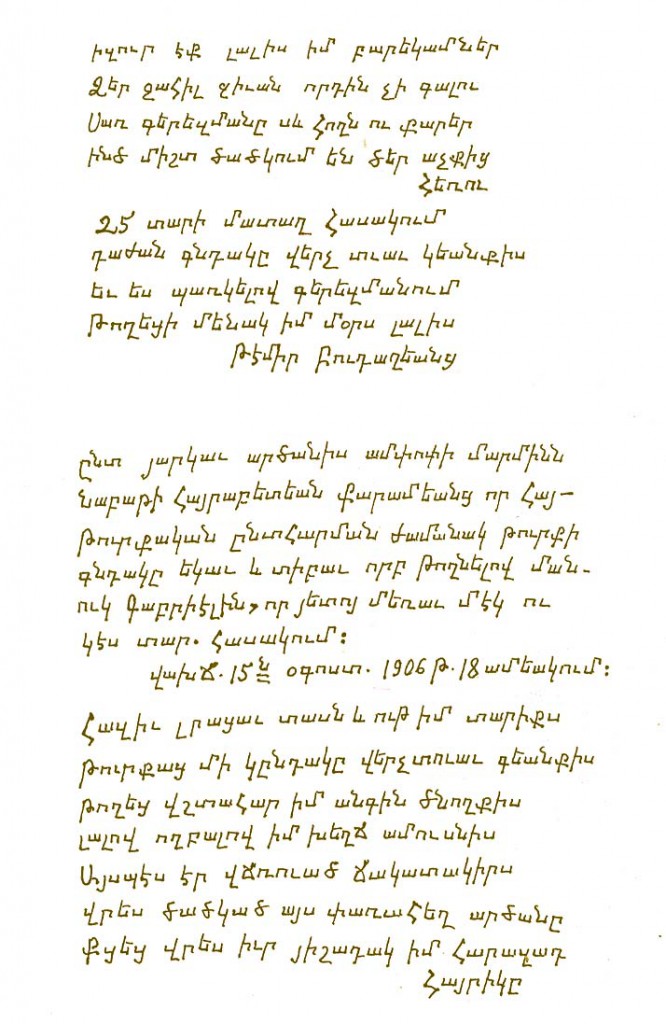 իզուր էք լալիս իմ բարեկամներ
Ձեր ջահիլ ջիւան որդին չի գալու
Սառ գերեզմանը սև հողն ու քարեր
ինձ միշտ ծածկում են ձեր աչքից
հեռու
25 տարի մատաղ հասակում
դաժան գնդակը վերջ տւաւ կեանքիս
եւ ես պառկելով գերեզմանում
թողեցի մենակ իմ մօրս լալիս
Թէմիր Բուդաղեանց
ընտ յարկաւ արձանիս ամփոփի մարմինն
Նաբաթի Հայրաբետեան Քարամեանց որ Հայ-
Թուրքական ընտհարման ժամանակ թուրքի
գնդակը եկաւ և տիբաւ որբ թողնելով ման-
ուկ Գաբրիէլին, որ յետոյ մեռաւ մէկ ու
կէս տար. հասակում:
վախճ. 15ն օգոստ. 1906 թ. 18 ամեակում:
Հազիւ լրացաւ տասն և ութ իմ տարիքս
թուրքաց մի կընդակը վերչտուաւ գեանքիս
թողեց վշտահար իմ անգին ծնողքիս
լալով ողբալով իմ խեղճ ամուսնիս
Այսպէս էր վճռուած ճակատակիրս
վրես ծածկած այս փառահեղ արձանը
քցեց վրես իւր յիշադակ իմ հարազադ
հայրիկը